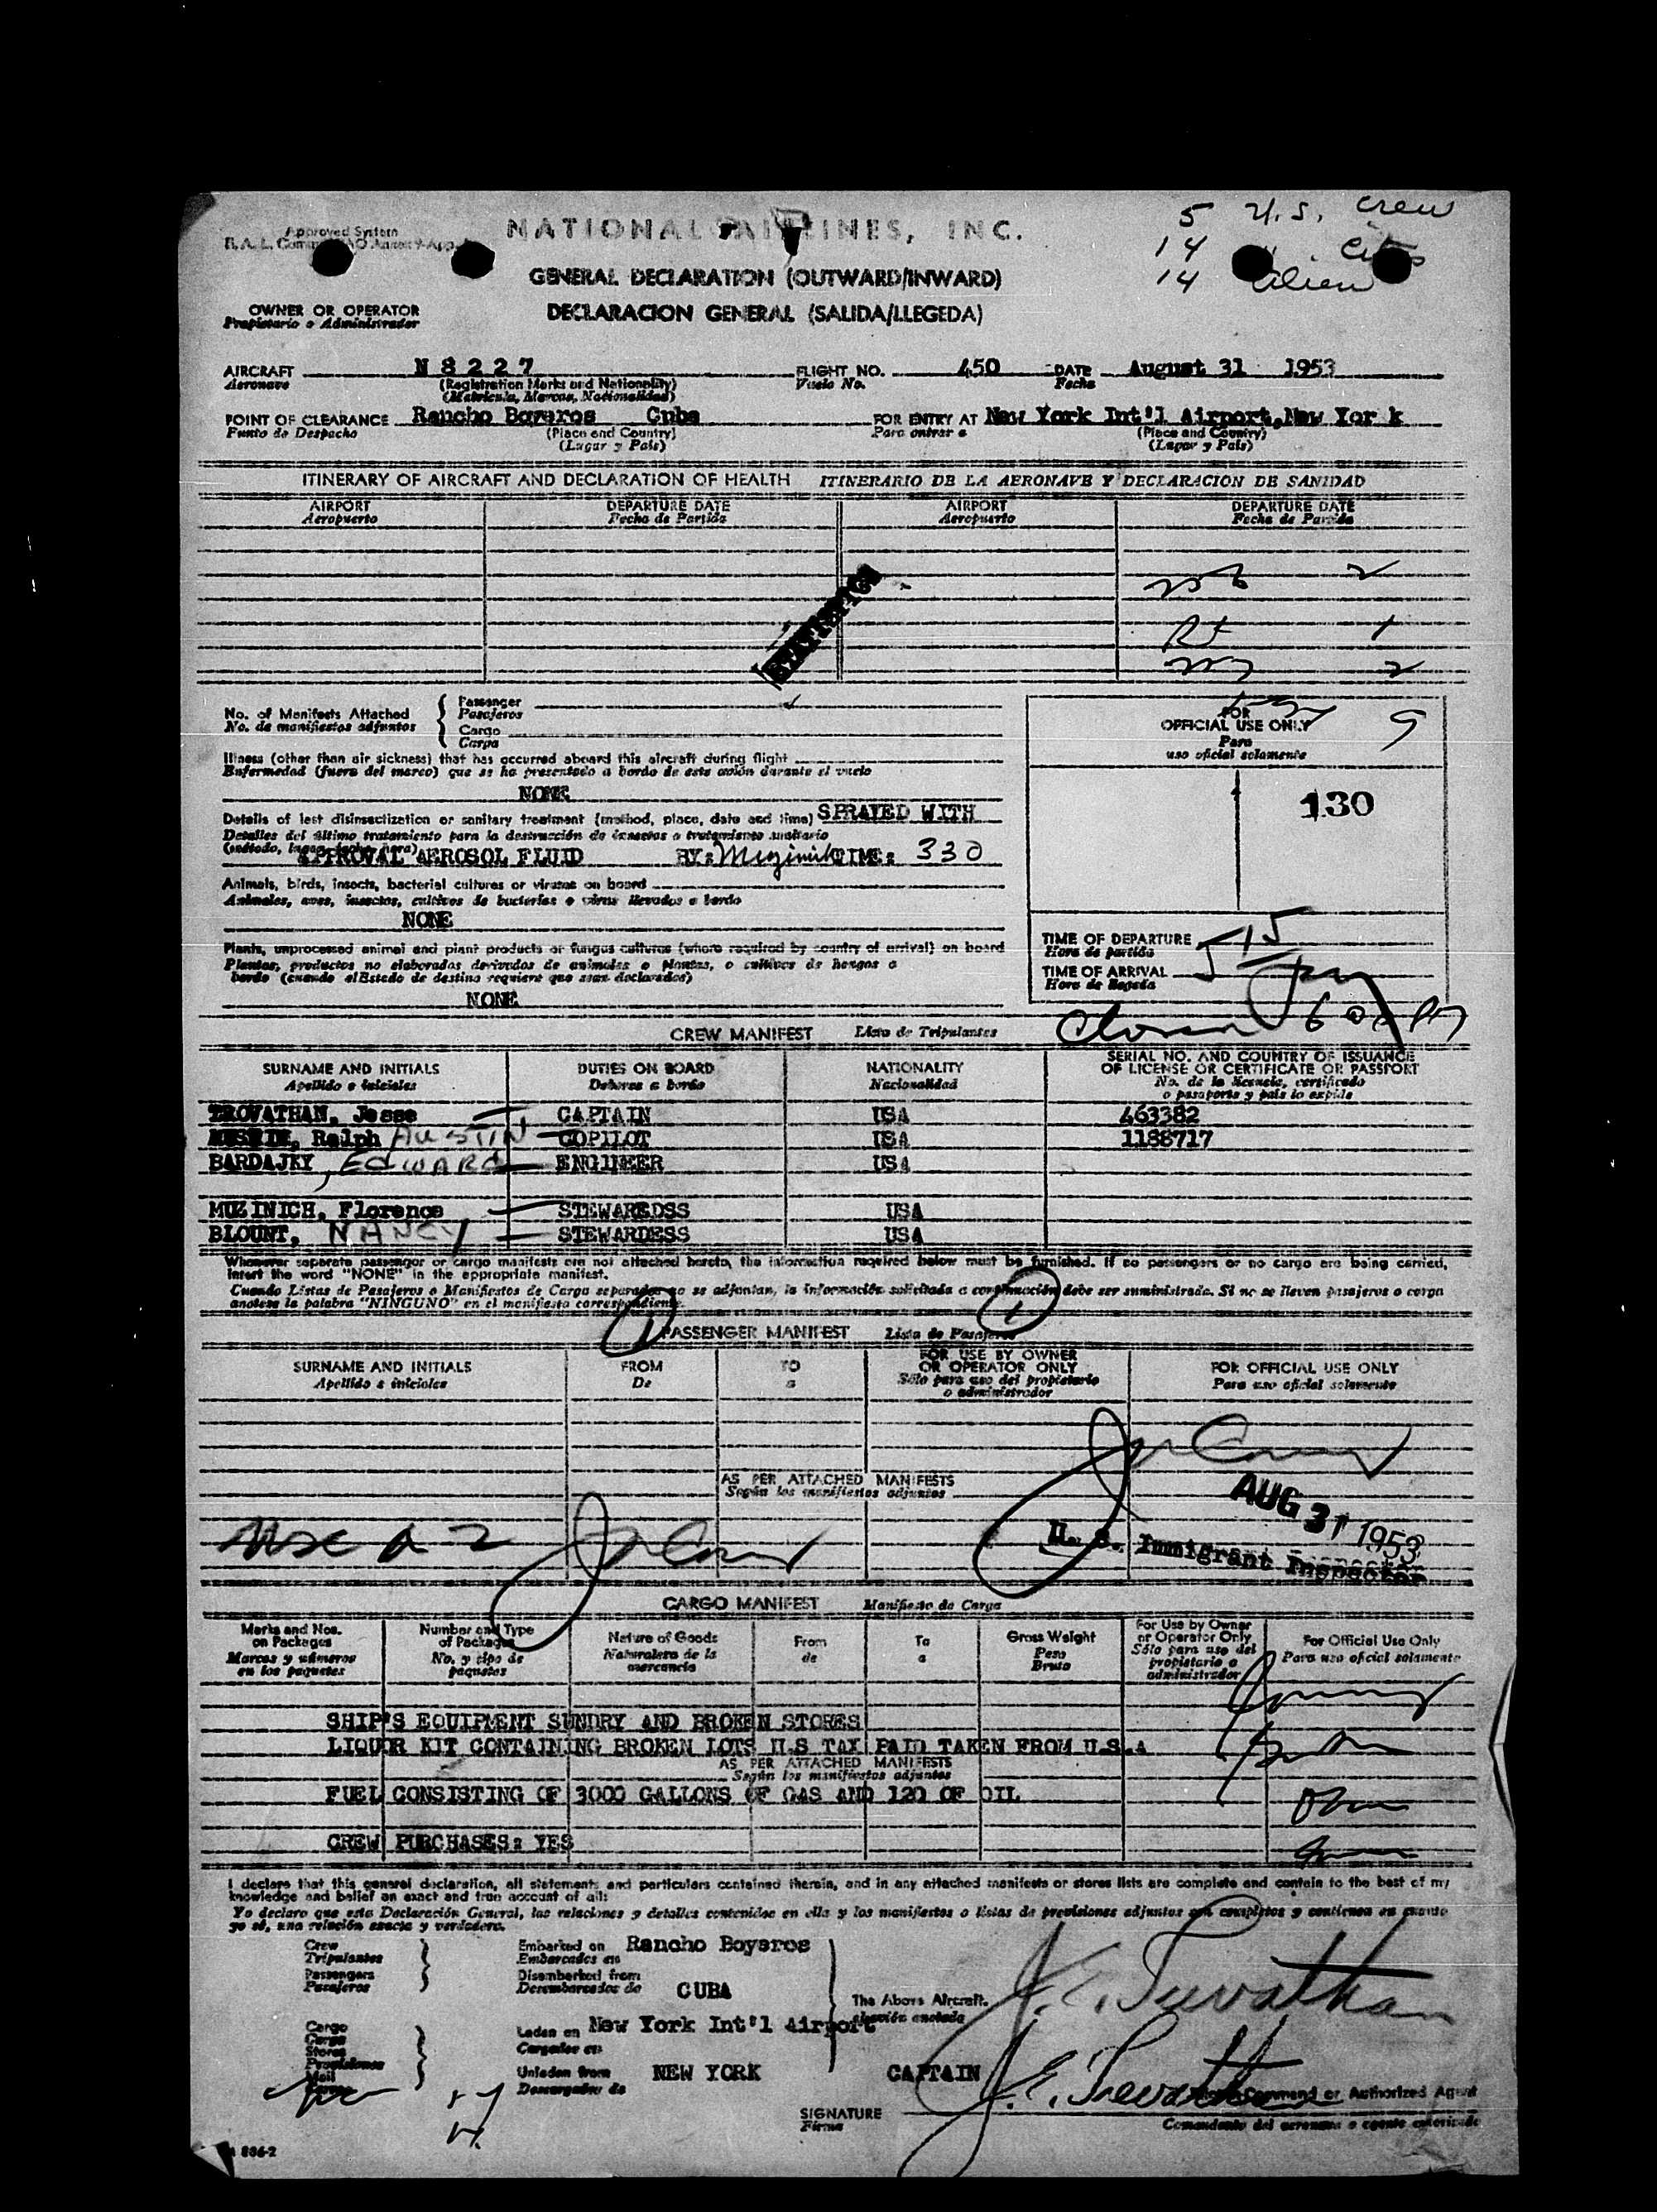 Approved System
NATIONAL AIRLINES, INC.
5 U.S. crew
14 " Cits
14 Alien
GENERAL DECLARATION (OUTWARD/INWARD)
DECLARACION GENERAL (SALIDA/LLEGEDA)
OWNER OR OPERATOR
Propietario o Administrador
AIRCRAFT N 8 2 2 7 FLIGHT NO. 450 DATE August 31 1953
Aeronave (Registration Marks and Nationality) Vuelo No. Fecha
(Matricula, Marcas, Nacionalidad)
POINT OF CLEARANCE Rancho Boyeros Cuba FOR ENTRY AT New York Int'l Airport,New Yor k
Punto de Despacho (Place and Country) Para entrar a (Place and Country)
(Lugar y Pais) (Lugar y Pais)
ITINERARY OF AIRCRAFT AND DECLARATION OF HEALTH ITINERARIO DE LA AERONAVE Y DECLARACION DE SANIDAD
AIRPORT DEPARTURE DATE AIRPORT DEPARTURE DATE
Aeropuerto Fecha de Partida Aeropuerto Fecha de Partida
2
STATISTICS
Rt 1
2
No. of Manifests Attached Passenger
No. de manifiestos adjuntos Pasajeros
Cargo
Carga
FOR
OFFICIAL USE ONLY 5
Para
uso oficial solamente
Illness (other than air sickness) that has occurred aboard this aircraft during flight
Enfermedad (fuera del mareo) que se ha presentado a bordo de este avión durante el vuelo
NONE
130
Details of last disinsectization or sanitary treatment (method, place, date and time) SPRAYED WITH
Detalles del último tratamiento para la destrucción de insectos o tratamiento sanitario
(método, lugar, fecha, hora)
APPROVAL AEROSOL FLUID BY: Muzinich TIME: 330
Animals, birds, insects, bacterial cultures or viruses on board
Animales, aves, insectos, cultivos de bacterias o virus llevados a bordo
NONE
Plants, unprocessed animal and plant products or fungus cultures (where required by country of arrival) on board
Plantas, productos no elaborados derivados de animales o plantas, o cultivos de hongos a
bordo (cuando el Estado de destino requiere que sean declarados)
NONE
TIME OF DEPARTURE
Hora de partida
515 pm
TIME OF ARRIVAL
Hora de llegada
600 PM
CREW MANIFEST Lista de Tripulantes
SURNAME AND INITIALS DUTIES ON BOARD NATIONALITY SERIAL NO. AND COUNTRY OF ISSUANCE
OF LICENSE OR CERTIFICATE OR PASSPORT
Apellido e iniciales Deberes a bordo Nacionalidad No. de la licencia, certificado
o pasaporte y pais lo expide
TROVATHAN, Jesse CAPTAIN USA 463382
Ralph AUSTIN COPILOT USA 1188717
BARDAJKY, EDWARD ENGINEER USA
MUZINICH, Florence STEWAREDSS USA
BLOUNT, NANCY STEWARDESS USA
Whenever separate passenger or cargo manifests are not attached hereto, the information required below must be furnished. If no passengers or no cargo are being carried,
insert the word "NONE" in the appropriate manifest.
Cuando Listas de Pasajeros o Manifiestos de Carga separados no se adjuntan, la información solicitada a continuación debe ser suministrada. Si no se llevan pasajeros o carga
anotese la palabra "NINGUNO" en el manifiesto correspondiente.
1 1
PASSENGER MANIFEST Lista de Pasajeros
SURNAME AND INITIALS FROM TO FOR USE BY OWNER
OR OPERATOR ONLY FOR OFFICIAL USE ONLY
Apellido e iniciales De a Sólo para uso del propietario
o administrador Para uso oficial solamente
AS PER ATTACHED MANIFESTS
Según los manifiestos adjuntos
AUG 31 1953
U. S. Immigrant Inspector
CARGO MANIFEST Manifiesto de Carga
Marks and Nos.
on Packages
Marcas y números
en los paquetes
Number and Type
of Packages
No. y tipo de
paquetes
Nature of Goods
Naturaleza de la
mercancia
From
de
To
a
Gross Weight
Peso
Bruto
For Use by Owner
or Operator Only
Sólo para uso del
propietario o
administrador
For Official Use Only
Para uso oficial solamente
SHIP'S EQUIPMENT SUNDRY AND BROKEN STORES
LIQUOR KIT CONTAINING BROKEN LOTS U.S TAX PAID TAKEN FROM U.S.A
AS PER ATTACHED MANIFESTS
Según los manifiestos adjuntos
FUEL CONSISTING OF 3000 GALLONS OF GAS AND 120 OF OIL
CREW PURCHASES: YES
I declare that this general declaration, all statements and particulars contained therein, and in any attached manifests or stores lists are complete and contain to the best of my
knowledge and belief an exact and true account of all:
Yo declaro que esta Declaración General, las relaciones y detalles contenidos en ella y los manifiestos o listas de previsiones adjuntos son completos y contienen en cuanto
yo sé, una relación exacta y verdadera.
Crew
Tripulantes
Passengers
Pasajeros
Embarked on Rancho Boyeros
Embarcados en
Disembarked from CUBA
Desembarcados de
The Above Aircraft.
Cargo
Carga
Stores
Provisiones
Mail
Laden on New York Int'l Airport
Cargados en
Unladen from NEW YORK
Descargados de
J. E. Trevathan
CAPTAIN J. E. Trevathan
Command or Authorized Agent
SIGNATURE
Firma
Comandante del aeronave o agente autorizado
836-2